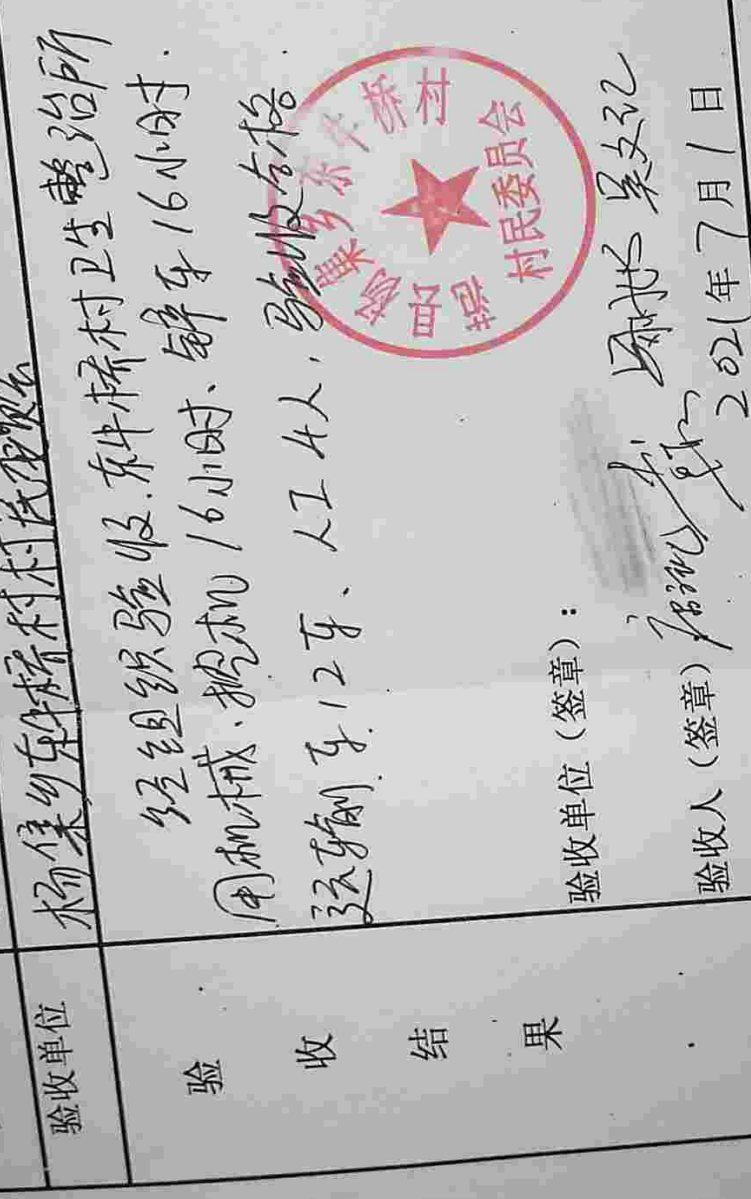 验收单位
杨集乡东牛桥村村民委员会
验收结果
经组织验收.东牛桥村卫生整治所
用机械、挖机16小时、铲车16小时.
运输车12车、人工4人，验收合格
杨集乡东牛桥村
村民委员会
验收单位（签章）：
验收人（签章）
吴文记
2021年7月1日